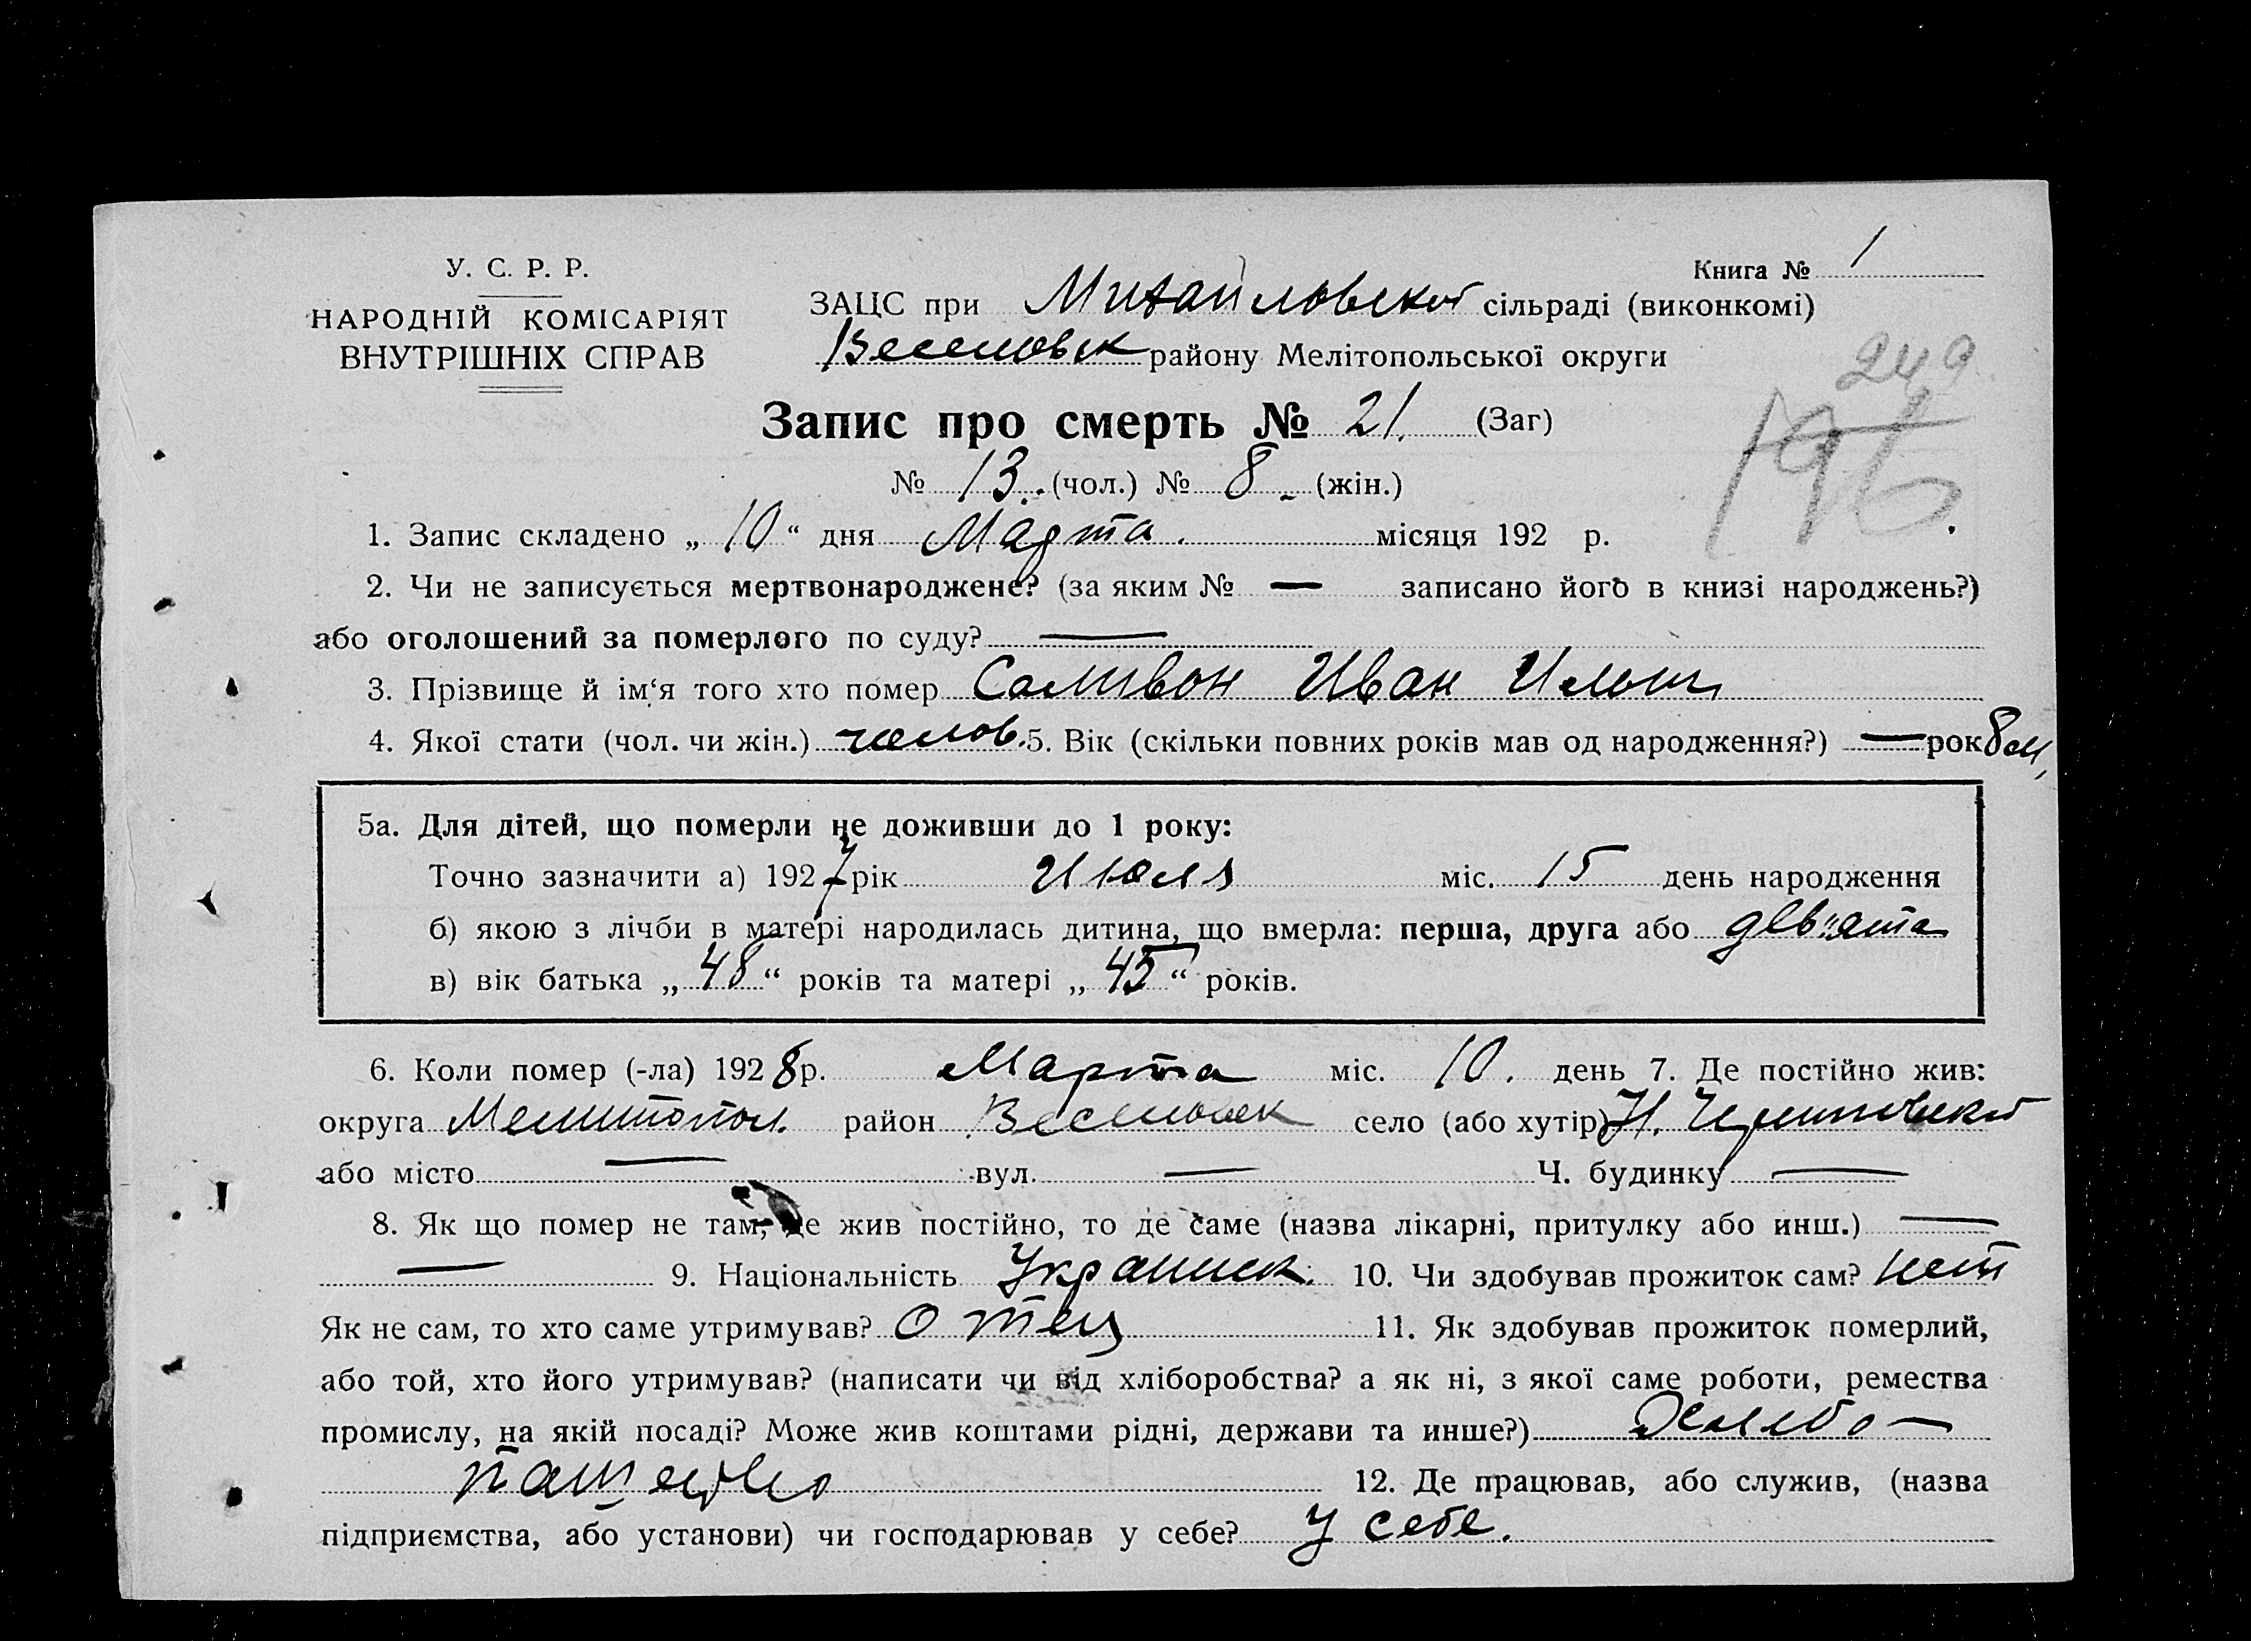 У. С. Р. Р.
НАРОДНІЙ КОМІСАРІЯТ
ВНУТРІШНІХ СПРАВ
Книга № 1
ЗАЦС при Михайловской сільраді (виконкомі)
Веселовск району Мелітопольської округи
249
196
Запис про смерть № 21. (Заг)
№ 13. (чол.) № 8 (жін.)
1. Запис складено „ 10 “ дня Марта. місяця 192 р.
2. Чи не записується мертвонароджене? (за яким № — записано його в книзі народжень?)
або оголошений за померлого по суду? —
3. Прізвище й ім‘я того хто помер Саливон Иван Ильич
4. Якої стати (чол. чи жін.) челов. 5. Вік (скільки повних років мав од народження?) — рок 8 м,
5а. Для дітей, що померли не доживши до 1 року:
Точно зазначити а) 1927 рік Июля міс. 15 день народження
б) якою з лічби в матері народилась дитина, що вмерла: перша, друга або дев"ята
в) вік батька „ 48 “ років та матері „ 45 “ років.
6. Коли помер (-ла) 1928 р. Марта міс. 10. день 7. Де постійно жив:
округа Мелитопол. район Веселовск село (або хутір) Н.
або місто — вул. — Ч. будинку —
8. Як що помер не там, де жив постійно, то де саме (назва лікарні, притулку або инш.) —
— 9. Національність Украинск. 10. Чи здобував прожиток сам? нет
Як не сам, то хто саме утримував? отец 11. Як здобував прожиток померлий,
або той, хто його утримував? (написати чи від хліборобства? а як ні, з якої саме роботи, ремества
промислу, на якій посаді? Може жив коштами рідні, держави та инше?) Хлебо-
пашество 12. Де працював, або служив, (назва
підприємства, або установи) чи господарював у себе? у себе.